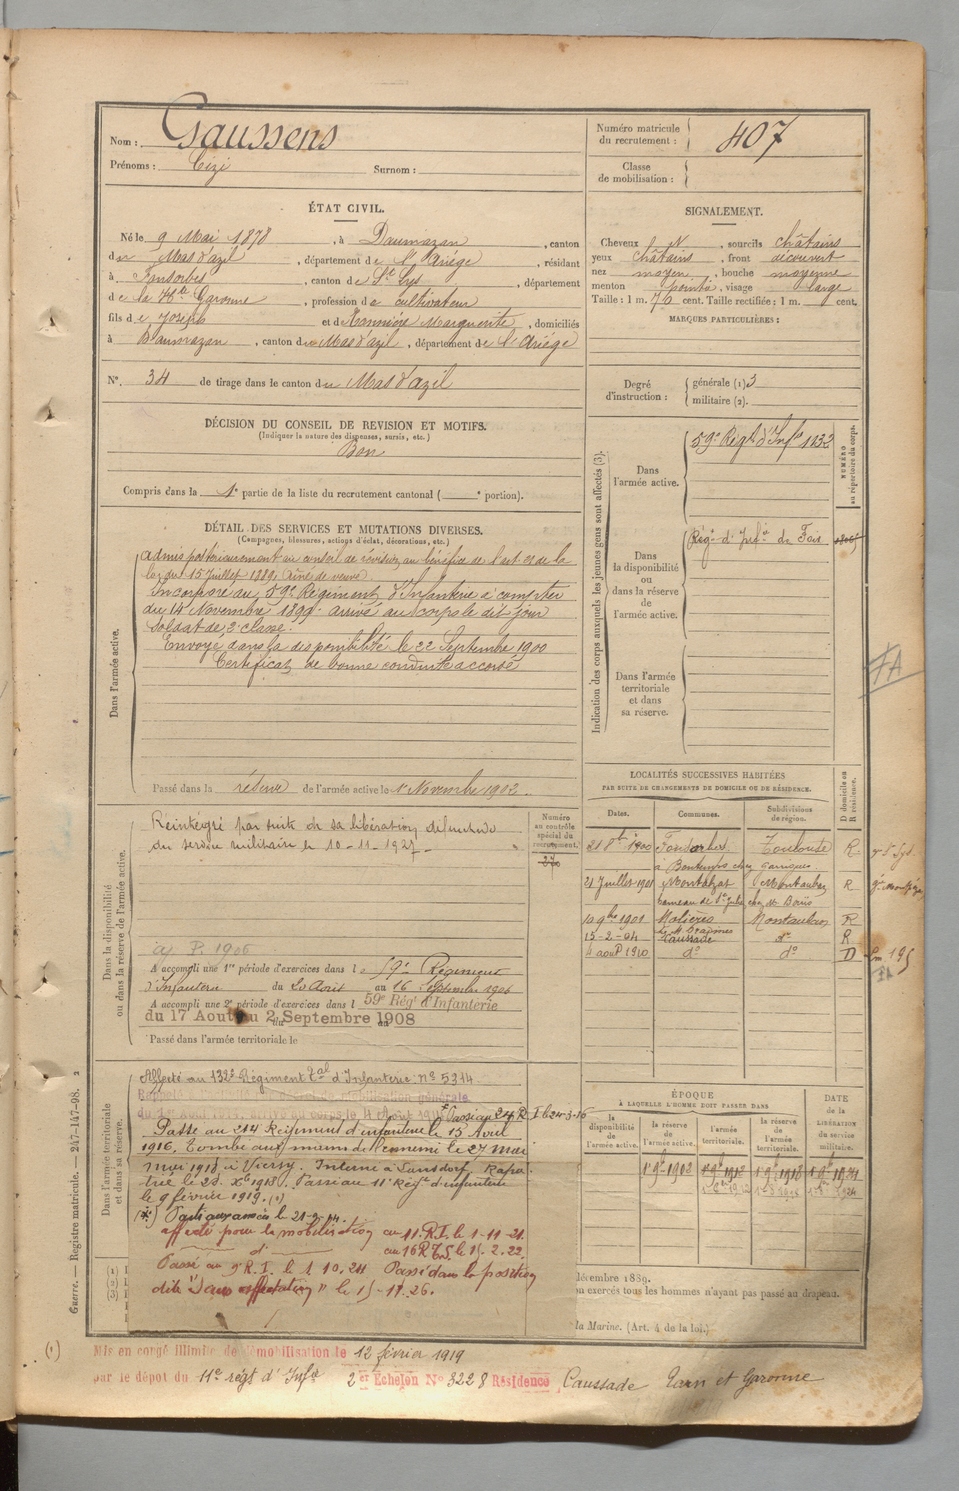 Nom : Gaussens
Prénoms : Cizi Surnom :
Numéro matricule du recrutement : 407
Classe de mobilisation :
ÉTAT CIVIL.
Né le 9 Mai 1878, à Daumazan, canton
du Mas d'azil, département de l'Ariège, résidant
à Fonsorbes, canton de St Lys, département
de la Hte Garonne, profession de cultivateur
fils de Joseph et de Marguerite, domiciliés
à Daumazan, canton du Mas d'azil, département de l'Ariège
N°. 34 de tirage dans le canton du Mas d'azil
SIGNALEMENT.
Cheveux N, sourcils châtains
yeux châtains, front découvert
nez moyen, bouche moyenne
menton pointu, visage large
Taille : 1 m. 76 cent. Taille rectifiée : 1 m. cent.
MARQUES PARTICULIÈRES :
Degré d'instruction : générale (1) 3
militaire (2).
DÉCISION DU CONSEIL DE REVISION ET MOTIFS.
(Indiquer la nature des dispenses, sursis, etc.)
Bon
Compris dans la 1e partie de la liste du recrutement cantonal ( e portion).
DÉTAIL DES SERVICES ET MUTATIONS DIVERSES.
(Campagnes, blessures, actions d'éclat, décorations, etc.)
Dans l'armée active.
admis postérieurement au conseil de révision au bénéfice de l'art. 21 de la
loi du 15 Juillet 1889. Aîné de veuve
Incorporé au 59e Régiment d'Infanterie à compter
du 14 Novembre 1899. arrivé au corps le dit jour
soldat de 2e classe.
Envoyé dans la disponibilité le 22 Septembre 1900
Certificat de bonne conduite accordé
Passé dans la réserve de l'armée active le 1 Novembre 1902.
Indication des corps auxquels les jeunes gens sont affectés (3).
NUMÉRO au répertoire du corps.
Dans l'armée active.
59e Régt d'Infie 1232
Dans la disponibilité ou dans la réserve de l'armée active.
Régt d'Infie de Foix
Dans l'armée territoriale et dans sa réserve.
FA
Dans la disponibilité ou dans la réserve de l'armée active.
Réintégré par suite de sa libération définitive
du service militaire le 10-11-1927
Numéro au contrôle spécial du recrutement.
a P. 1906
A accompli une 1re période d'exercices dans le 59e Régiment
d'Infanterie du 20 Août au 16 Septembre 1906
A accompli une 2e période d'exercices dans l 59e Régt d'Infanterie
du 17 Août au 2 Septembre 1908
Passé dans l'armée territoriale le
LOCALITÉS SUCCESSIVES HABITÉES
PAR SUITE DE CHANGEMENTS DE DOMICILE OU DE RÉSIDENCE.
Dates. Communes. Subdivisions de région. D domicile ou R résidence.
21 8bre 1900 Fonsorbes Toulouse R
à Bontemps chez Garrigues
21 Juillet 1901 Montalzat Montauban R
hameau de chez
10 9bre 1901 Molières Montauban R
15-2-04 Caussade do R
4 août 1910 do do D
Dans l'armée territoriale et dans sa réserve.
Affecté au 132e Régiment Tal d'Infanterie no 5314
du 1er Août 1914. arrivé au corps le 4 Août 1914
Passé au 214 Régiment d'infanterie le 15 Avril
1916. Tombé aux mains de l'ennemi le 27 mai
mai 1918 à Vierzy. Interné à Landsdorf. Rapa-
trié le 25 Xbre 1918. Passé au 11e Régt d'infanterie
le 9 février 1919. (1)
affecté pour la mobilisation au 11. R.I. le 1-11-21.
do au 16 R.T.S. le 15. 2. 22.
Passé au 9e R.I. le 1 10. 24 Passé dans la position
dite "Sans affectation" le 15-11-26.
ÉPOQUE
À LAQUELLE L'HOMME DOIT PASSER DANS
la disponibilité de l'armée active. la réserve de l'armée active. l'armée territoriale. la réserve de l'armée territoriale.
DATE de la LIBÉRATION du service militaire.
1 9bre 1902
décembre 1889.
on exercés tous les hommes n'ayant pas passé au drapeau.
la Marine. (Art. 4 de la loi.)
Guerre. — Registre matricule. — 247-147-98. 2
(1) Mis en congé illimité de démobilisation le 12 février 1919
par le dépot du 11e régt d'Infie 2er Echelon N° 3228 Résidence Caussade Tarn et Garonne